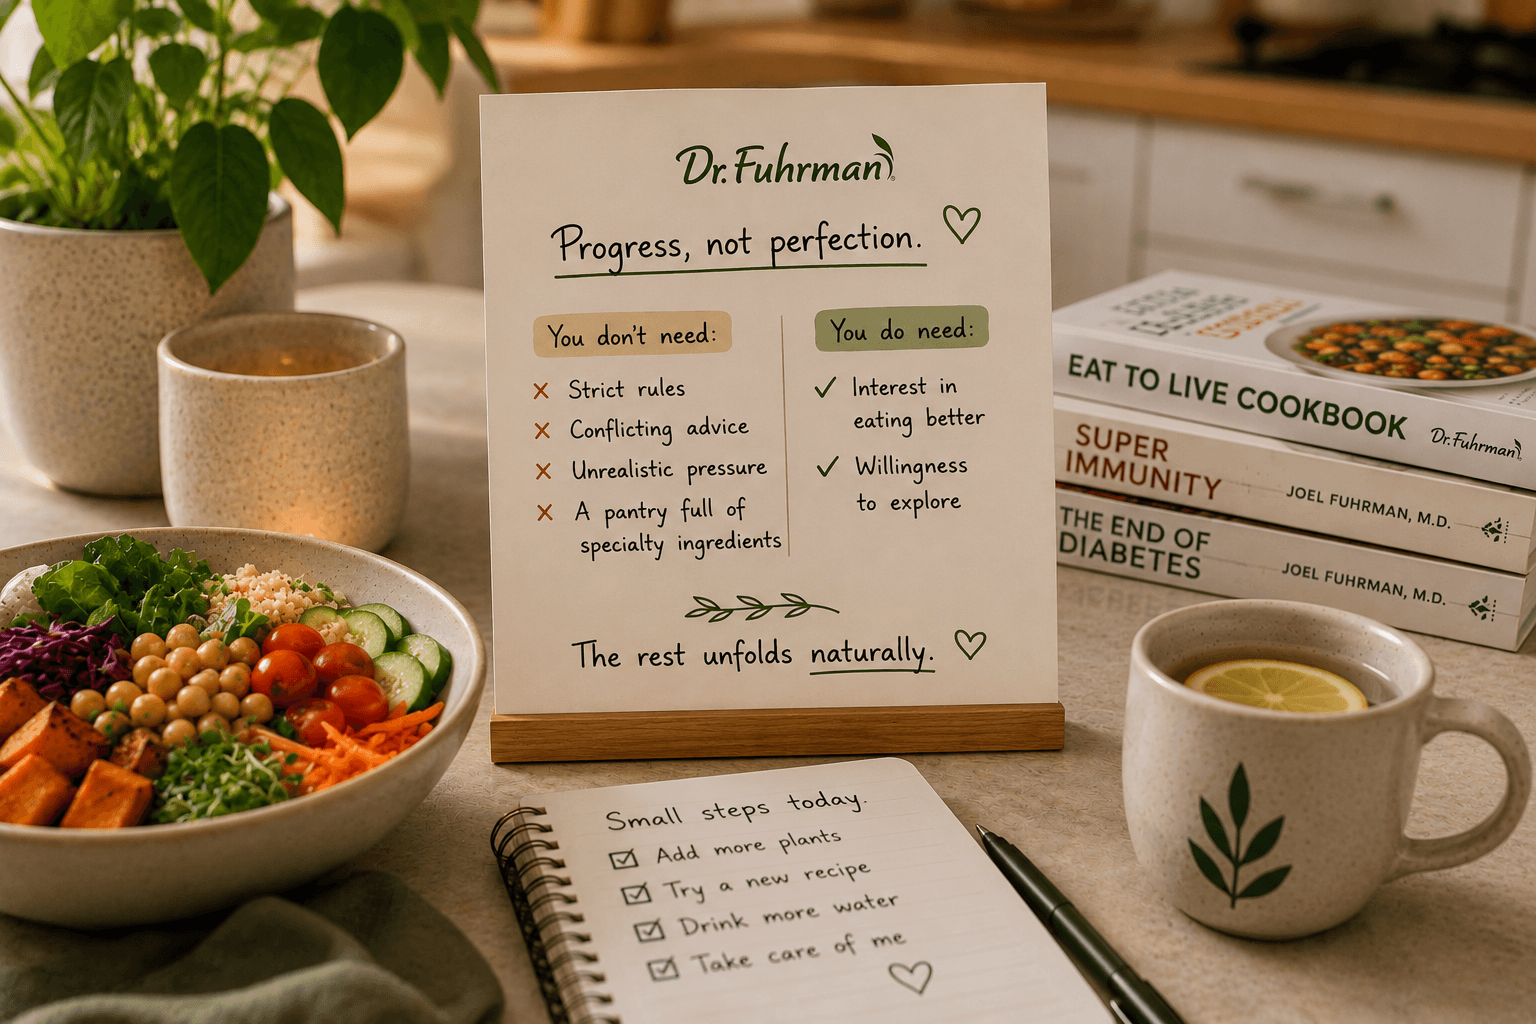 Dr. Fuhrman
Progress, not perfection.
You don't need:
Strict rules
Conflicting advice
Unrealistic pressure
A pantry full of
specialty ingredients
You do need:
Interest in
eating better
Willingness
to explore
The rest unfolds naturally.
EAT TO LIVE COOKBOOK Dr. Fuhrman
SUPER
IMMUNITY
JOEL FUHRMAN, M.D.
THE END OF
DIABETES
JOEL FUHRMAN, M.D.
Small steps today.
Add more plants
Try a new recipe
Drink more water
Take care of me